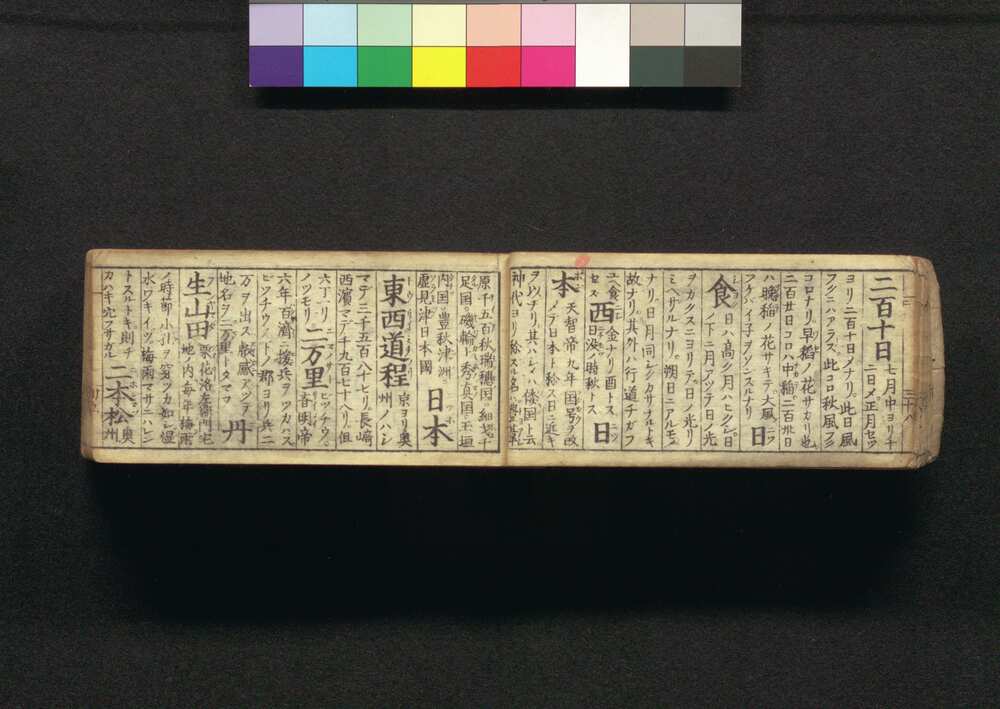 二百十日 七月中ヨリチ
二日メ正月セツ
ヨリ二百十日メナリ。此日風
フクニハアラス此コロ秋風フク
コロナリ早稲ノ花サカリ也
二百廿日コロハ中稲二百卅日
ハ晩稲ノ花サキテ大風ニアフ
アキハイ子ヲソンスルナリ 日
食 日ハ高ク月ハヒクシ日
ノ下ニ月アツテ日ノ光
ヲカクスニヨリテ日ノ光リ
ミヘサルナリ。朔日ニアルモ
ナリ日月同シクカサナルトキ
故ナリ。其外ハ行道チガフ
ユ食 金ナリ酉トス
セス 西 日没ノ時秋トス 日
本 天智帝九年国号ヲ改
メテ日本ト称ス日ニ近キ
ヲ以ナリ其ハシメハ倭国ト云
神代ヨリ称スル名
原千五百秋瑞穂国細戈千
足国磯輪上秀真国玉垣
内国豊秋津洲
虚見津日本國 日本
東西道程 東ヨリ奥
州ノハシ
マデ二千五百八十七リ長嶋
西濱マデ千九百七十八リ但
六丁一リ 二万里 ビッチウノ
ノツモリ 昔明帝
六年百濟ノ援兵ヲツカハス
ビッチウノ下ノ郡ヨリ兵二
万ヲ出ス
地名ヲ二万里トタマフ 丹
生山田 栗花洛左衛門宅
地内毎年梅雨
ノ時節小
水ワキイヅ梅雨マサニハレン
トスルトキ則チ 二本松 奥
州